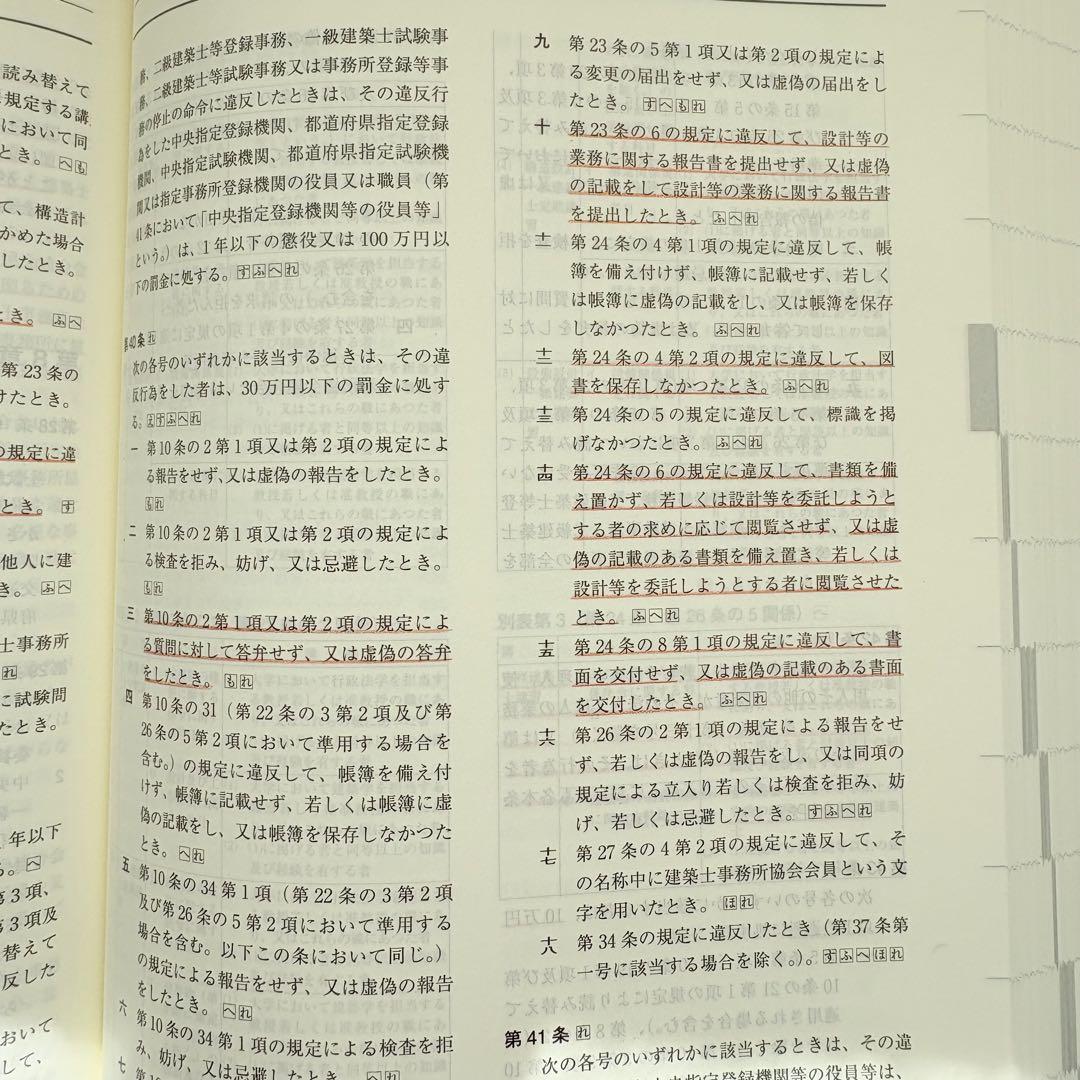 読み替えて
規定する講
において同
とき。へも
て、構造計
かめた場合
したとき。
とき。ふへ
第23条の
けたとき。
の規定に違
とき。す
他人に建
き。ふへ
士事務所
れ
に試験問
たとき。
年以下
る。へ
第3項、
第3項及
替えて
反した
おいて
して、
務、二級建築士等登録事務、一級建築士試験事
務、二級建築士等試験事務又は事務所登録等事
務の停止の命令に違反したときは、その違反行
為をした中央指定登録機関、都道府県指定登録
機関、中央指定試験機関、都道府県指定試験機
関又は指定事務所登録機関の役員又は職員（第
41条において「中央指定登録機関等の役員等」
という。）は、1年以下の懲役又は100万円以
下の罰金に処する。すふへれ
第40条れ
次の各号のいずれかに該当するときは、その違
反行為をした者は、30万円以下の罰金に処す
る。よすふへれ
一 第10条の2第1項又は第2項の規定によ
る報告をせず、又は虚偽の報告をしたとき。
もれ
二 第10条の2第1項又は第2項の規定によ
る検査を拒み、妨げ、又は忌避したとき。
もれ
三 第10条の2第1項又は第2項の規定によ
る質問に対して答弁せず、又は虚偽の答弁
をしたとき。もれ
四 第10条の31（第22条の3第2項及び第
26条の5第2項において準用する場合を
含む。）の規定に違反して、帳簿を備え付
けず、帳簿に記載せず、若しくは帳簿に虚
偽の記載をし、又は帳簿を保存しなかつた
とき。へれ
五 第10条の34第1項（第22条の3第2項
及び第26条の5第2項において準用する
場合を含む。以下この条において同じ。）
の規定による報告をせず、又は虚偽の報告
をしたとき。へれ
六 第10条の34第1項の規定による検査を拒
み、妨げ、又は忌避したとき。へれ
七
九 第23条の5第1項又は第2項の規定によ
る変更の届出をせず、又は虚偽の届出をし
たとき。すへもれ
十 第23条の6の規定に違反して、設計等の
業務に関する報告書を提出せず、又は虚偽
の記載をして設計等の業務に関する報告書
を提出したとき。ふへれ
十一 第24条の4第1項の規定に違反して、帳
簿を備え付けず、帳簿に記載せず、若しく
は帳簿に虚偽の記載をし、又は帳簿を保存
しなかつたとき。ふへれ
十二 第24条の4第2項の規定に違反して、図
書を保存しなかつたとき。ふへれ
十三 第24条の5の規定に違反して、標識を掲
げなかつたとき。ふへれ
十四 第24条の6の規定に違反して、書類を備
え置かず、若しくは設計等を委託しようと
する者の求めに応じて閲覧させず、又は虚
偽の記載のある書類を備え置き、若しくは
設計等を委託しようとする者に閲覧させた
とき。ふへれ
十五 第24条の8第1項の規定に違反して、書
面を交付せず、又は虚偽の記載のある書面
を交付したとき。ふへれ
十六 第26条の2第1項の規定による報告をせ
ず、若しくは虚偽の報告をし、又は同項の
規定による立入り若しくは検査を拒み、妨
げ、若しくは忌避したとき。すふへれ
十七 第27条の4第2項の規定に違反して、そ
の名称中に建築士事務所協会会員という文
字を用いたとき。ほれ
十八 第34条の規定に違反したとき（第37条第
十一号に該当する場合を除く。）。すふへほれ
第41条れ
次の各号のいずれかに該当するときは、その違
中央指定登録機関等の役員等は、